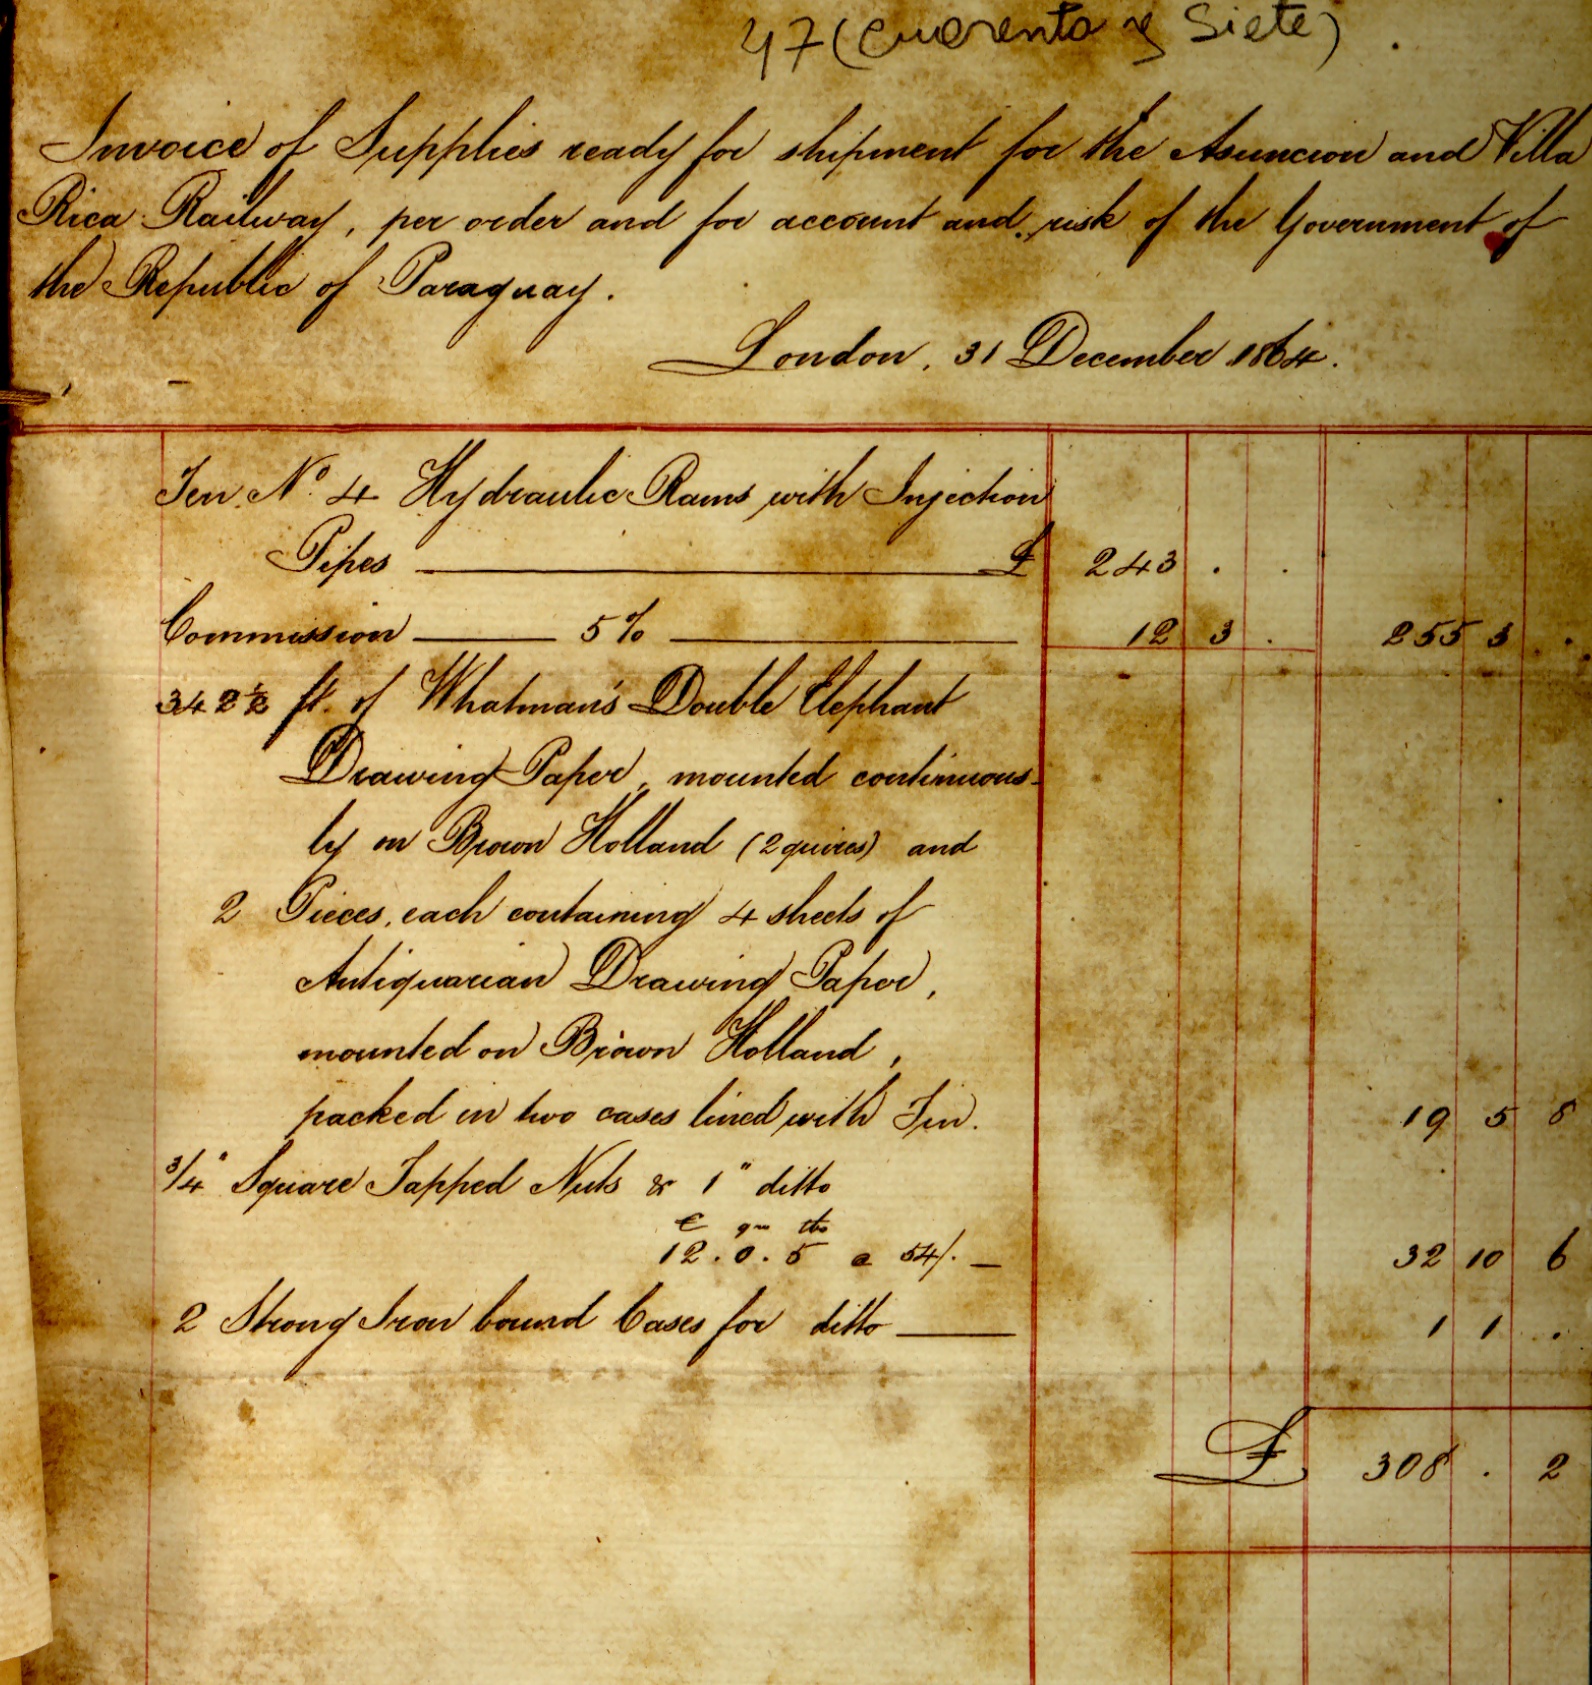 47 (Cuarenta y Siete)
Invoice of Supplies ready for shipment for the Asuncion and Villa
Rica Railway, per order and for account and risk of the Government of
the Republic of Paraguay.
London, 31 December 1864.
Ten No. 4 Hydraulic Rams with Injection
Pipes £ 243 . .
Commission 5% 12 3 . 255 3 .
342½ ft. of Whatman's Double Elephant
Drawing Paper, mounted continuous-
ly on Brown Holland (2 quires) and
2 Pieces, each containing 4 sheets of
Antiquarian Drawing Paper,
mounted on Brown Holland,
packed in two cases lined with Tin. 19 5 8
3/4" Square Tapped Nuts & 1" ditto
C qrs lbs
12 . 0 . 5 a 54/. 32 10 6
2 Strong Iron bound Cases for ditto 1 1 .
£ 308 . 2